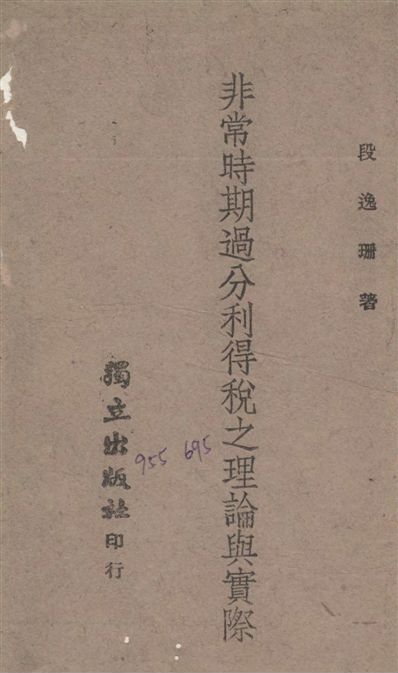 段逸珊著
非常時期過分利得稅之理論與實際
獨立出版社印行
955 695